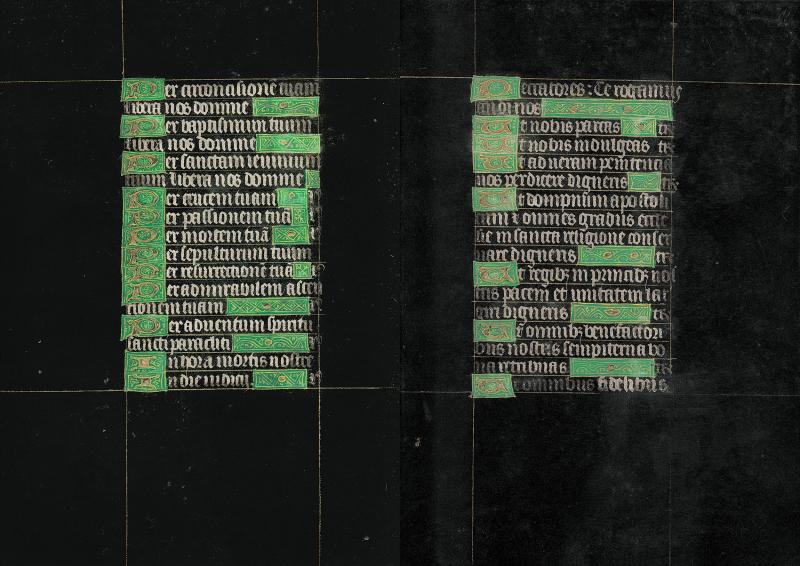 Per circoncisionē tuam
libera nos domine
Per baptismum tuum
libera nos domine
Per sanctam ieiunium
tuum libera nos domine
Per crucem tuam
Per passionem tuā
Per mortem tuā
Per sepulturam tuam
Per resurrectionē tuā
Per admirabilem ascen
cionem tuam
Per adventum spiritu
sancti paracliti
In hora mortis nostre
In die iudicii
Peccatores: Te rogamus
audi nos
Ut nobis parcas te
Ut nobis indulgeas te
Ut ad veram penitencia
nos perducere digneris te
Ut dompnum apostoli
cum et omnes gradus eccle
sie in sancta religione conser
vare digneris
Ut regibꝫ
pacem et unitatem lar
giri digneris te
Ut omnibꝫ benefactori
bus nostris sempiterna bo
na retribuas te
Ut omnibus fidelibus